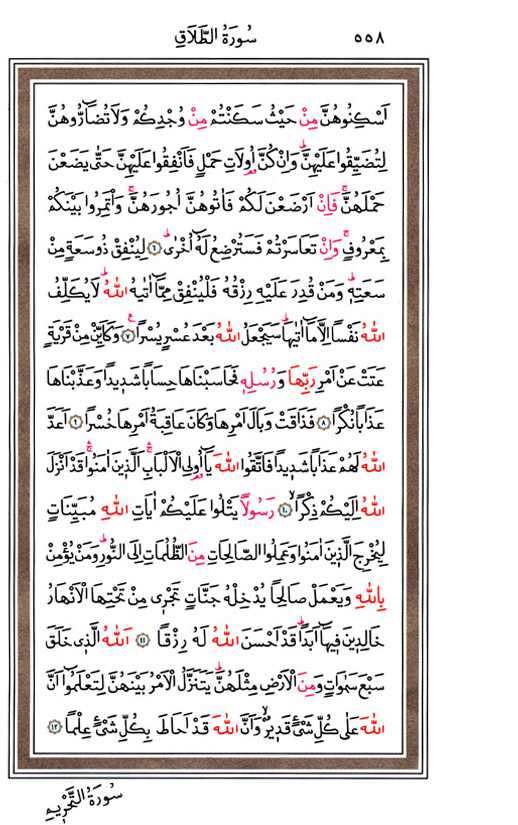 ٥٥٨ سُورَةُ الطَّلَاقِ
اَسْكِنُوهُنَّ مِنْ حَيْثُ سَكَنْتُمْ مِنْ وُجْدِكُمْ وَلَا تُضَٓارُّوهُنَّ
لِتُضَيِّقُوا عَلَيْهِنَّۜ وَاِنْ كُنَّ اُو۬لَاتِ حَمْلٍ فَاَنْفِقُوا عَلَيْهِنَّ حَتّٰى يَضَعْنَ
حَمْلَهُنَّۚ فَاِنْ اَرْضَعْنَ لَكُمْ فَاٰتُوهُنَّ اُجُورَهُنَّۚ وَأْتَمِرُوا بَيْنَكُمْ
بِمَعْرُوفٍۚ وَاِنْ تَعَاسَرْتُمْ فَسَتُرْضِعُ لَهُٓ اُخْرٰىۜ ﴿٦﴾ لِيُنْفِقْ ذُو سَعَةٍ مِنْ
سَعَتِه۪ۜ وَمَنْ قُدِرَ عَلَيْهِ رِزْقُهُ فَلْيُنْفِقْ مِمَّٓا اٰتٰيهُ اللّٰهُۜ لَا يُكَلِّفُ
اللّٰهُ نَفْسًا اِلَّا مَٓا اٰتٰيهَاۜ سَيَجْعَلُ اللّٰهُ بَعْدَ عُسْرٍ يُسْرًا۟ ﴿٧﴾ وَكَاَيِّنْ مِنْ قَرْيَةٍ
عَتَتْ عَنْ اَمْرِ رَبِّهَا وَرُسُلِه۪ فَحَاسَبْنَاهَا حِسَابًا شَد۪يدًا وَعَذَّبْنَاهَا
عَذَابًا نُكْرًا ﴿٨﴾ فَذَاقَتْ وَبَالَ اَمْرِهَا وَكَانَ عَاقِبَةُ اَمْرِهَا خُسْرًا ﴿٩﴾ اَعَدَّ
اللّٰهُ لَهُمْ عَذَابًا شَد۪يدًا فَاتَّقُوا اللّٰهَ يَٓا اُو۬لِي الْاَلْبَابِۚۛ اَلَّذ۪ينَ اٰمَنُواۚۛ قَدْ اَنْزَلَ
اللّٰهُ اِلَيْكُمْ ذِكْرًاۙ ﴿١٠﴾ رَسُولًا يَتْلُوا عَلَيْكُمْ اٰيَاتِ اللّٰهِ مُبَيِّنَاتٍ
لِيُخْرِجَ الَّذ۪ينَ اٰمَنُوا وَعَمِلُوا الصَّالِحَاتِ مِنَ الظُّلُمَاتِ اِلَى النُّورِۜ وَمَنْ يُؤْمِنْ
بِاللّٰهِ وَيَعْمَلْ صَالِحًا يُدْخِلْهُ جَنَّاتٍ تَجْر۪ي مِنْ تَحْتِهَا الْاَنْهَارُ
خَالِد۪ينَ ف۪يهَٓا اَبَدًاۜ قَدْ اَحْسَنَ اللّٰهُ لَهُ رِزْقًا ﴿١١﴾ اَللّٰهُ الَّذ۪ي خَلَقَ
سَبْعَ سَمٰوَاتٍ وَمِنَ الْاَرْضِ مِثْلَهُنَّۜ يَتَنَزَّلُ الْاَمْرُ بَيْنَهُنَّ لِتَعْلَمُٓوا اَنَّ
اللّٰهَ عَلٰى كُلِّ شَيْءٍ قَد۪يرٌۙ وَاَنَّ اللّٰهَ قَدْ اَحَاطَ بِكُلِّ شَيْءٍ عِلْمًا ﴿١٢﴾
سُورَةُ التَّحْر۪يمِ